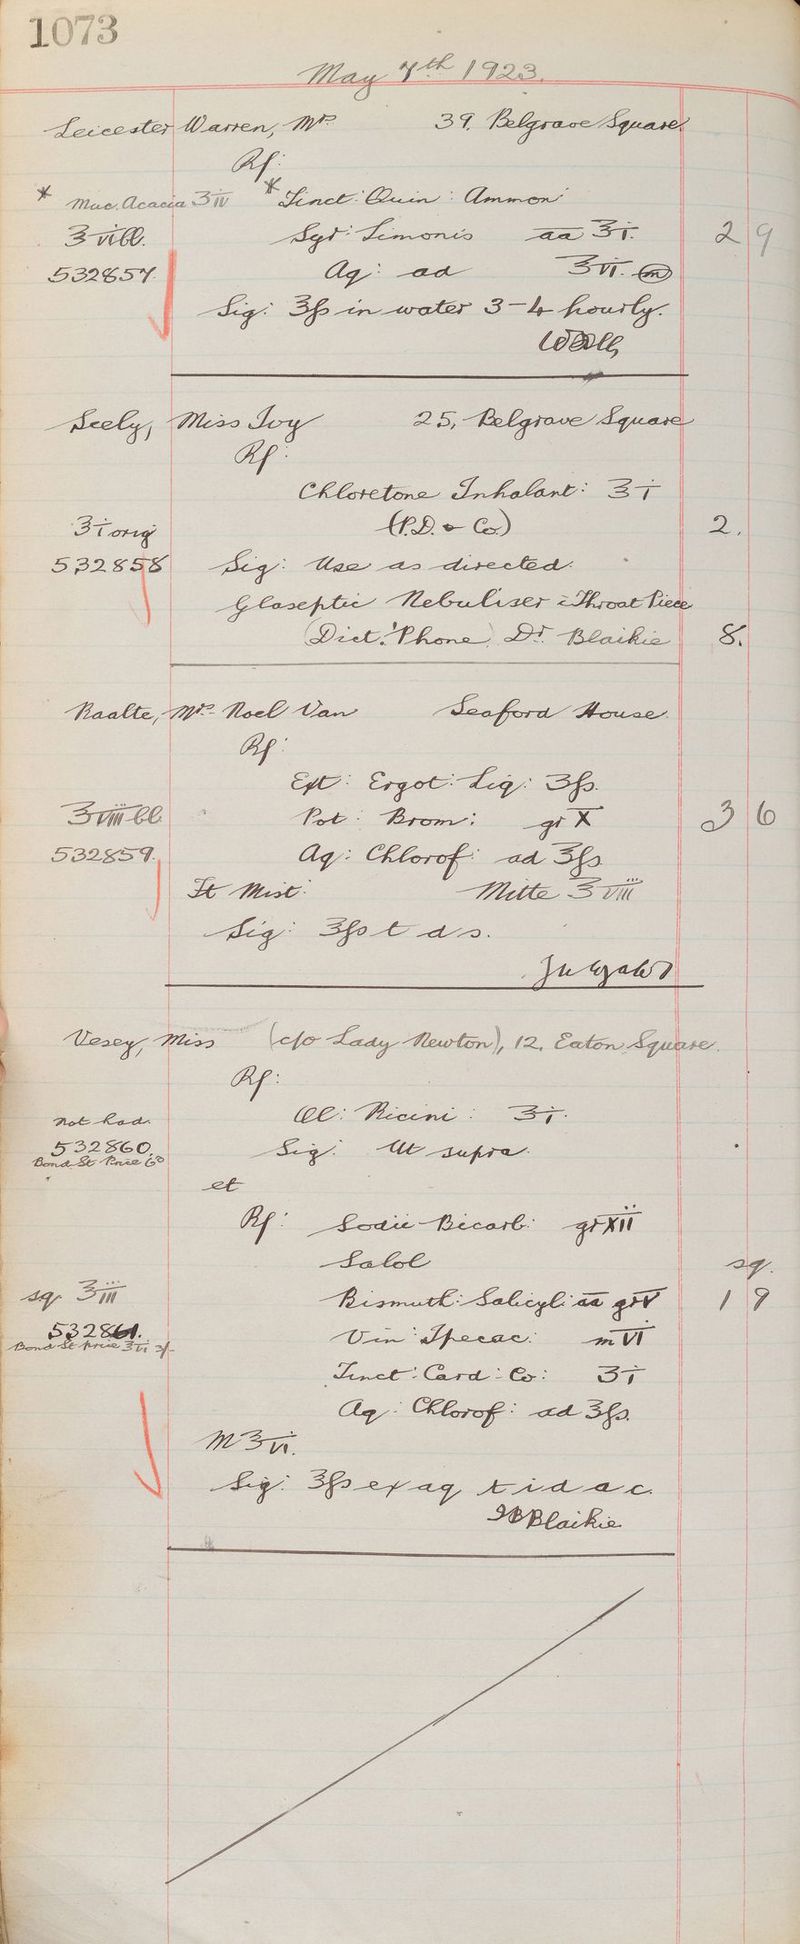 1073
May 7th 1923.
Leicester Warren, Mrs 39. Belgrave Square.
Rx:
* Muc. Acacia ʒiv * Tinct: Quin: Ammon:
℥vi bb. Syr: Limonis aa ℥i. 2 9
532857. Aq: ad ℥vi. (m)
Sig: ʒß in water 3-4 hourly.
Seely, Miss Ivy 25, Belgrave Square
Rx:
Chloretone Inhalant: ℥i
℥i orig (P.D. & Co.) 2.
532858 Sig: Use as directed.
Glaseptic Nebuliser c̄ Throat Piece
(Dict: 'Phone) Dr. Blaikie 8.
Raalte, Mrs Noel Van Seaford House.
Rx:
Ext: Ergot: Liq: ʒß.
℥viii bb Pot: Brom: gr X 3 6
532859. Aq: Chlorof: ad ℥ß
Ft Mist: Mitte ℥viii
Sig: ℥ß t d s.
Vesey, Miss (c/o Lady Newton), 12, Eaton Square.
Rx:
Not had. Ol: Ricini: ℥i.
532860. Sig: Ut supra.
Bond St Price 6d
et
Rx: Sodii Bicarb: gr xii
Salol sq.
sq. ℥iii Bismuth: Salicyl: aa gr v 1 9
532861. Vin: Ipecac: m vi
Bond St price ℥vi 3/-
Tinct: Card: Co: ʒi
Aq: Chlorof: ad ℥ß.
M ℥vi.
Sig: ℥ß ex aq t i d a c.
JB Blaikie